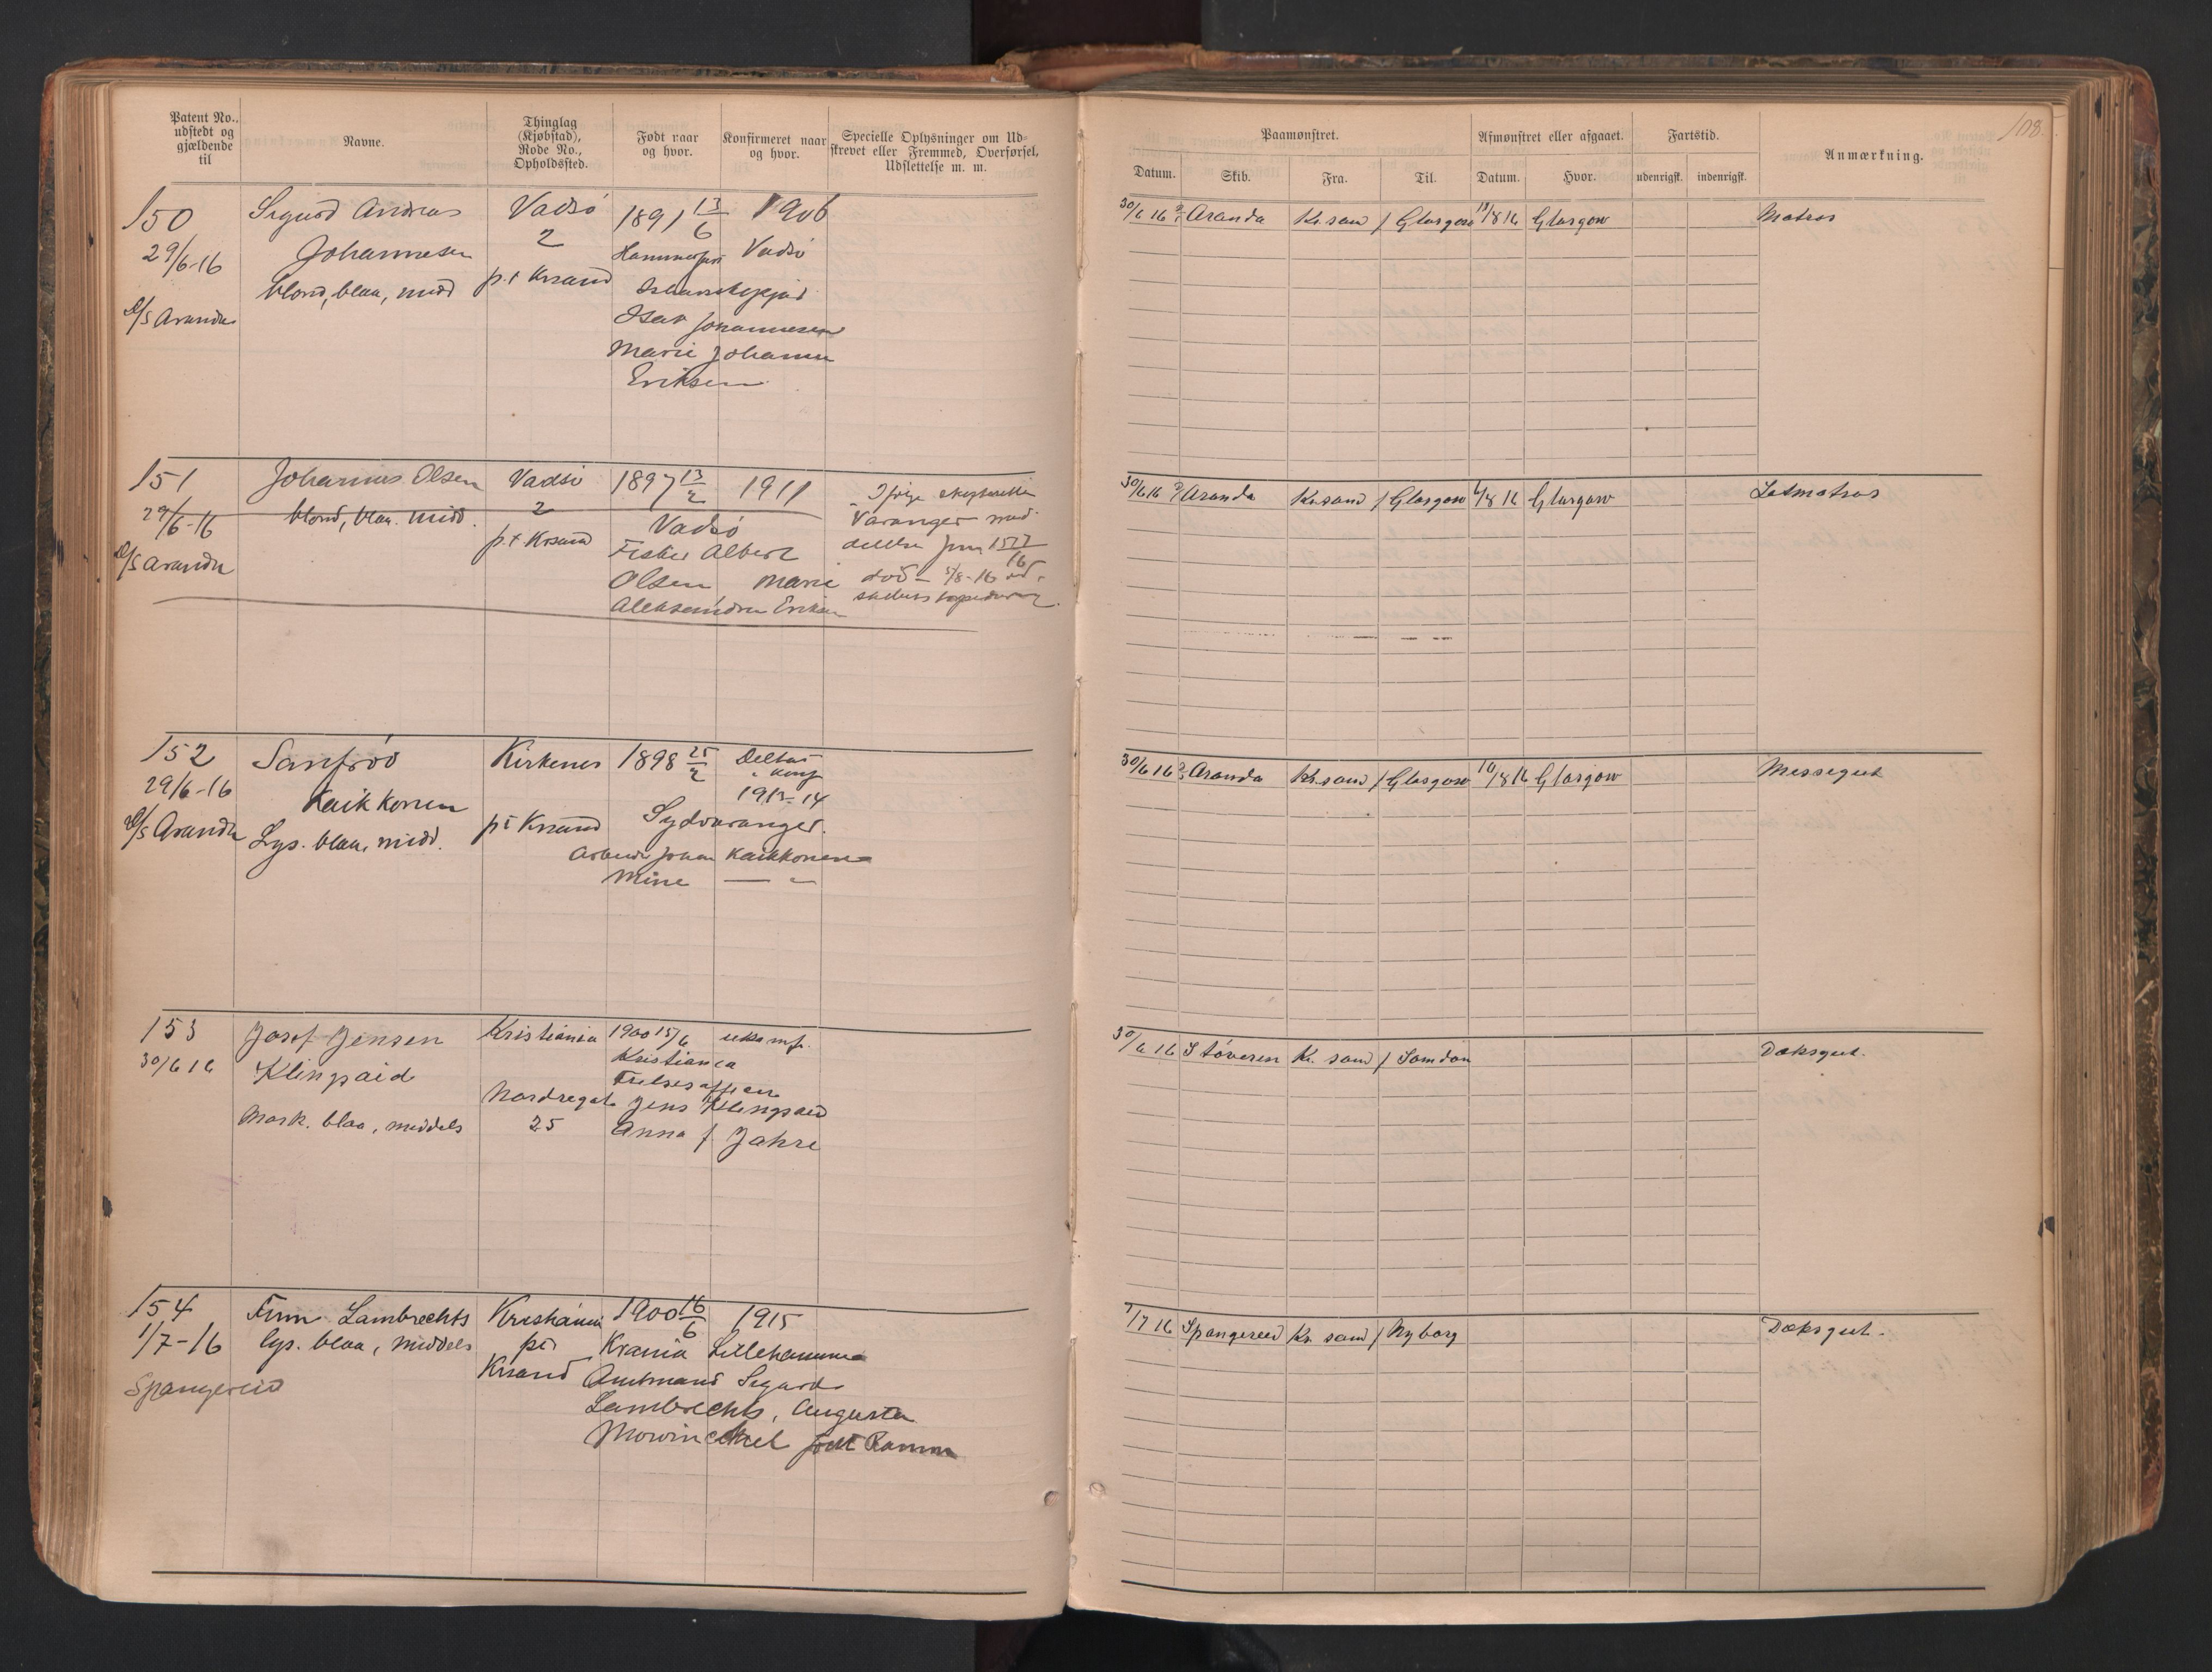 108.
Patent No., udstedt og gjældende til
Navne.
Thinglag (Kjøbstad), Rode No., Opholdssted.
Født naar og hvor.
Konfirmeret naar og hvor.
Specielle Oplysninger om Udskrevet eller Fremmed, Overførsel, Udslettelse m. m.
Paamønstret.
Afmønstret eller afgaaet.
Fartstid.
Anmærkning.
Datum. Skib. Fra. Til. Datum. Hvor. udenrigst. indenrigst.
150 Sigurd Andreas Vadsø 1891 13/6 1906
29/6-16 Johannesen 2 Hammerfest Vadsø
blond, blaa, midd p.t Krsand
D/S Aranda Isak Johannesen
Marie Johanne
Eriksen
30/6 16 Aranda Kr.sand / Glasgow /8 16 Glasgow Matros
151 Johannes Olsen Vadsø 1897 13/2 1911 Ifølge
29/6-16 blond, blaa. midd. 2 Vadsø Varanger med-
p.t Krsand Fisker Albert delelse
D/S Aranda Olsen Marie død 5/8-16 ved
Aleksandra Eriksen skibets torpedering
30/6 16 Aranda Kr.sand / Glasgow /8 16 Glasgow Letmatros
152 Sanfrid Kirkenes 1898 25/2 Deltat
29/6-16 Kaikkonen i konf
1913-14
D/S Aranda Lys. blaa, midd. pt Krsand Sydvaranger.
Arbeider Johan Kaikkonen
Mine — " —
30/6 16 Aranda Kr.sand / Glasgow 10/8 16 Glasgow Messegut
153 Josef Jensen Kristiania 1900 15/6 ukonf.
30/6 16 Klingsaid Kristiania
Frelsesofficer
Nordregat. Jens Klingsaid
Mørk. blaa, middels 25 Anna f. Jahre
30/6 16 Støveren Kr. sand / London Dæksgut.
154 Finn Lambrechts Kristiania 1900 16/6 1915
1/7-16 lys. blaa, middels pt Krania Lillehammer
Krsand Amtmand Sigurd
Spangereid Lambrechts, Augusta
Mowinckel født Ramm
1/7 16 Spangereid Kr. sand / Nyborg Dæksgut.